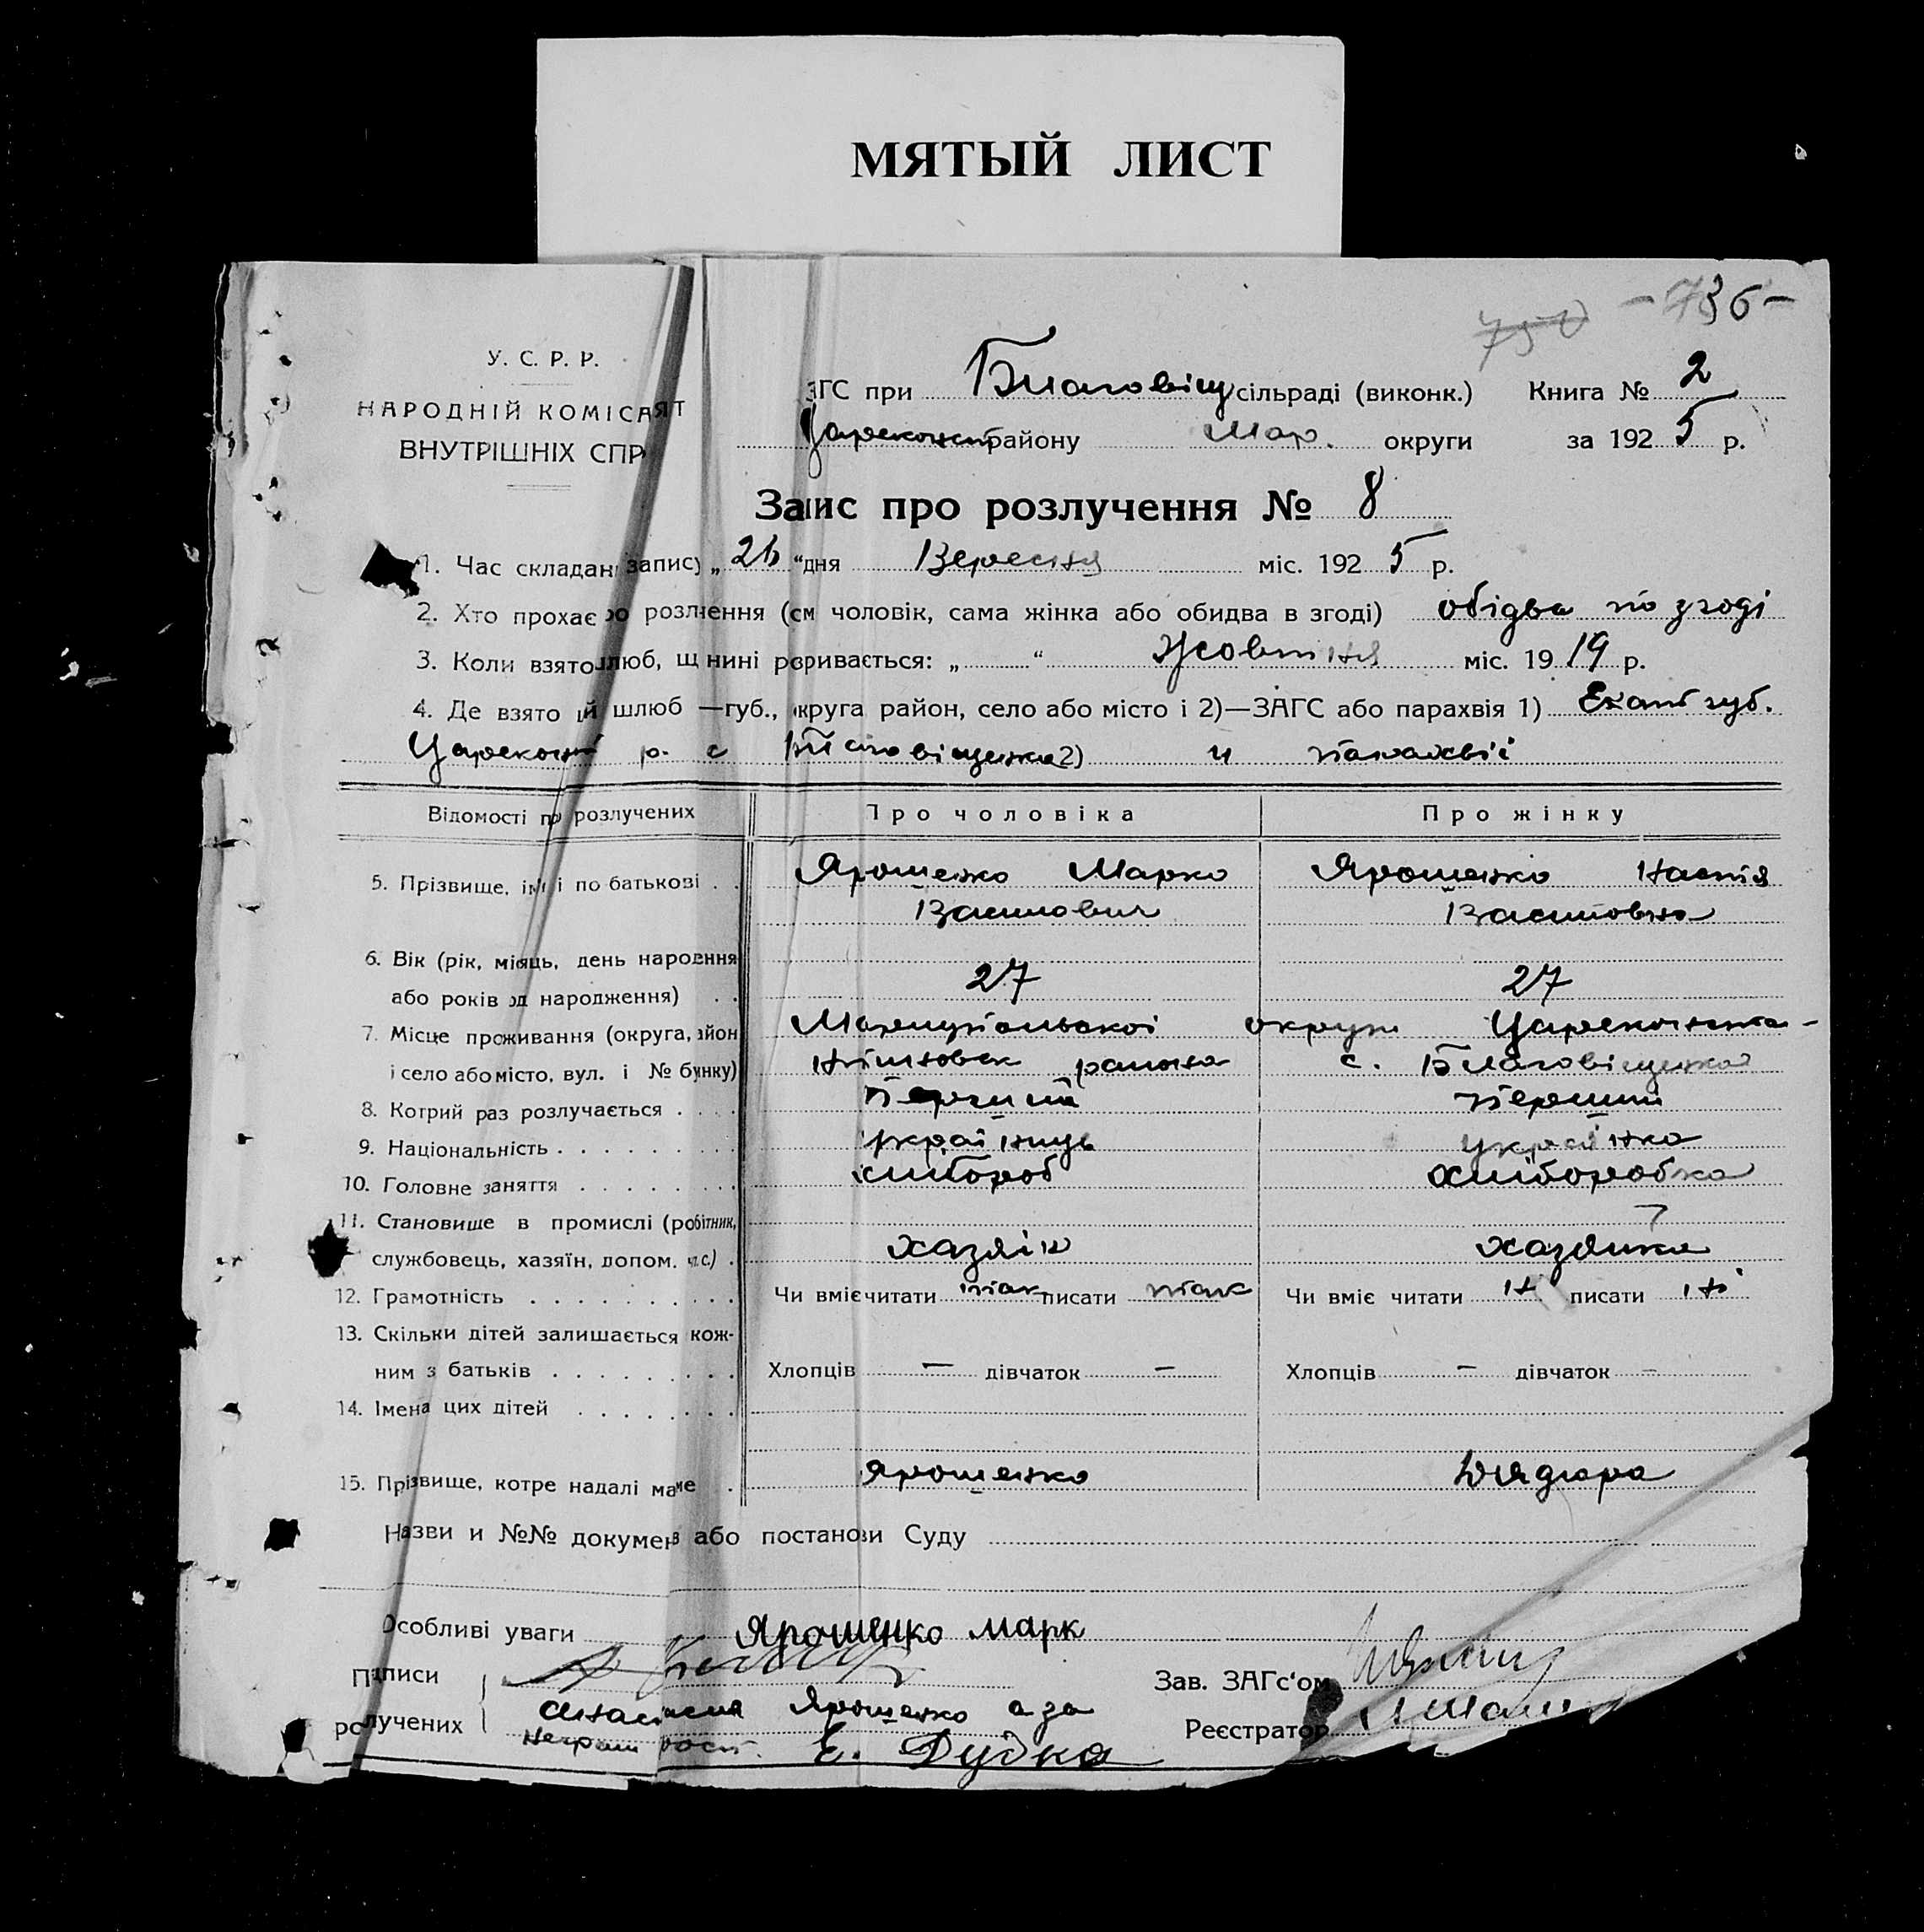 МЯТЫЙ ЛИСТ
- 736 -
750
У. С. Р. Р.
НАРОДНІЙ КОМІСАЯТ
ВНУТРІШНІХ СПР
ЗГС при Благовіщ сільраді (виконк.) Книга № 2
Цареконст району Мар. округи за 1925 р.
Заис про розлучення № 8
1. Час складан запису „26“ дня Вересня міс. 1925 р.
2. Хто прохає ро розлчення (см чоловік, сама жінка або обидва в згоді) обідва по згоді
3. Коли взято люб, щ нині рзривається: „ “ Жовтня міс. 1919 р.
4. Де взято ій шлюб —губ., круга район, село або місто і 2)—ЗАГС або парахвія 1) Екат губ.
Царекон р. с Благовіщенка 2) и парахвії
Відомості пр розлучених Про чоловіка Про жінку
5. Прізвище, ім і по батькові . . Ярошенко Марко Ярошенко Настя
Василович Василовна
6. Вік (рік, місяць, день народення
або років од народження) . . 27 27
7. Місце проживання (округа, айон Маріупольської округи Цареконстан-
і село або місто, вул. і № бунку) тіновск района с. Благовіщенка
8. Котрий раз розлучається . . . . Перший перший
9. Національність . . . . . . . . . українць українка
10. Головне заняття . . . . . . . хлібороб хліборобка
11. Становище в промислі (робітник,
службовець, хазяїн, допом. чл.с.) . хазяін хазяйка
12. Грамотність . . . . . . . . . . Чи вміє читати так писати так Чи вміє читати ні писати ні
13. Скільки дітей залишається кож-
ним з батьків . . . . . . . . . Хлопців — дівчаток — Хлопців — дівчаток —
14. Імена цих дітей . . . . . . .
15. Прізвище, котре надалі маме . Ярошенко Дядюра
Назви и №№ докумен або постанови Суду
Особливі уваги Ярошенко Марк
Пдписи
розлучених
Зав. ЗАГс‘ом
Анастасия Ярошенко а за
Реєстратор
Неграм рост. Е. Дудка